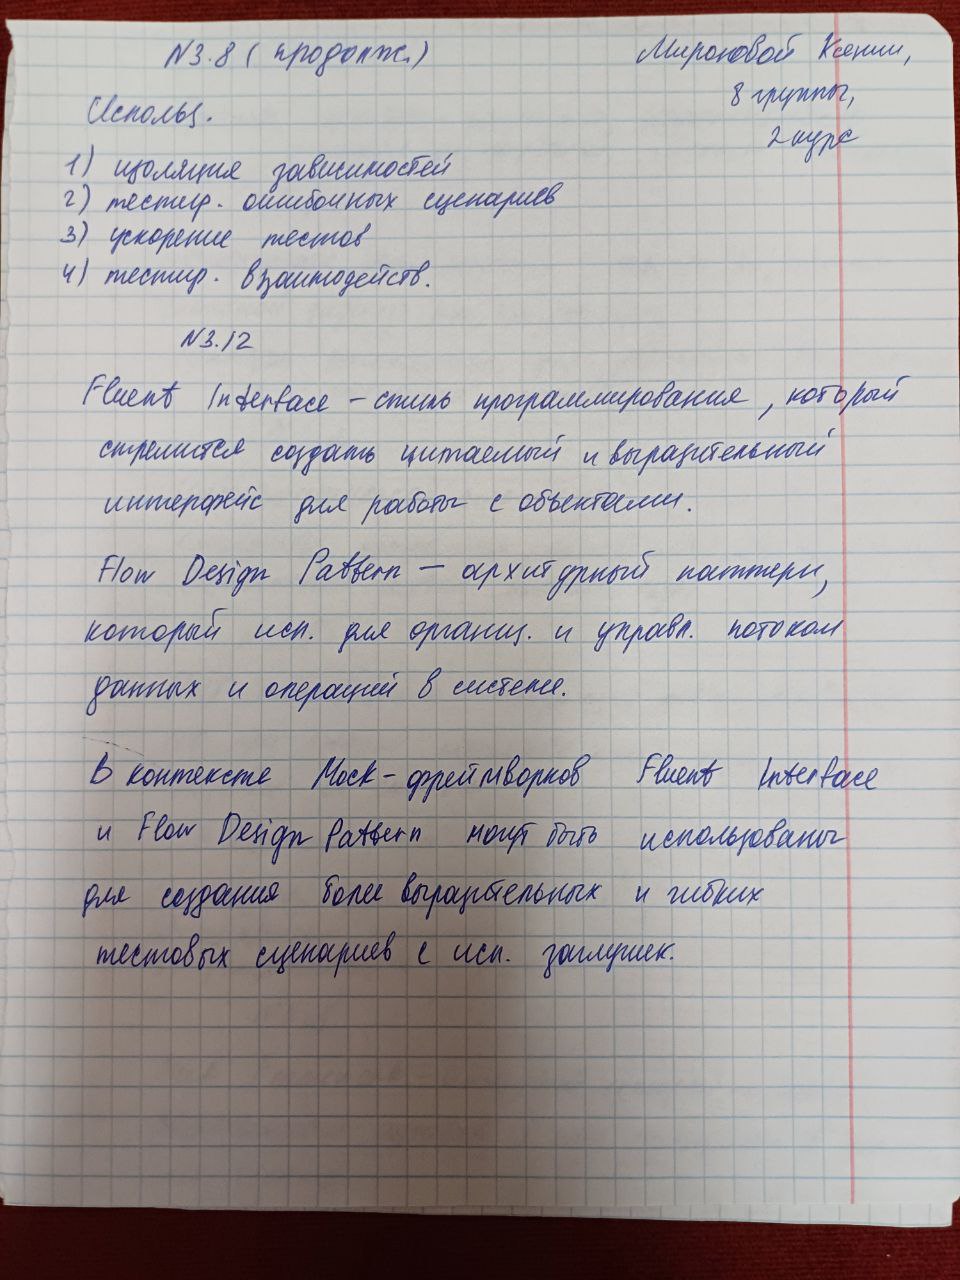 N3.8 (продолж.)
Мироновой Ксении,
8 группы,
2 курс
Использ.
1) изоляция зависимостей
2) тестир. ошибочных сценариев
3) ускорение тестов
4) тестир. взаимодейств.
N3.12
Fluent Interface – стиль программирования, который
стремится создать читаемый и выразительный
интерфейс для работы с объектами.
Flow Design Pattern – архитурный паттерн,
который исп. для организ. и управл. потоком
данных и операций в системе.
В контексте Mock-фреймворков Fluent Interface
и Flow Design Pattern могут быть использованы
для создания более выразительных и гибких
тестовых сценариев с исп. заглушек.